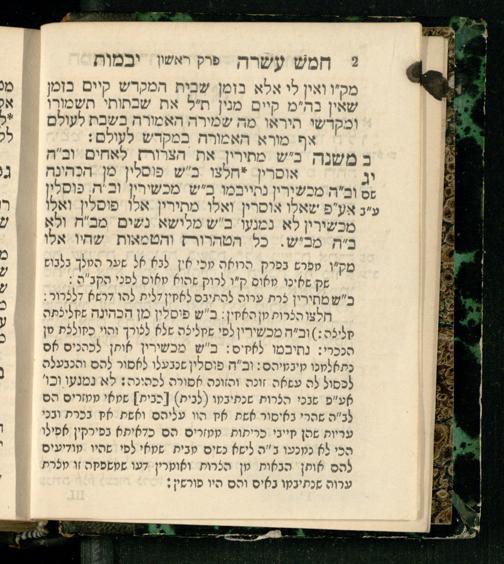 2 חמש עשרה פרק ראשון יבמות
מק״ו ואין לי אלא בזמן שבית המקדש קיים בזמן
שאין בה״מ קיים מנין ת״ל את שבתותי תשמורו
ומקדשי תיראו מה שמירה האמורה בשבת לעולם
אף מורא האמורה במקדש לעולם:
ב משנה ב״ש מתירין את הצרות לאחים וב״ה
יג אוסרין *חלצו ב״ש פוסלין מן הכהונה
שם וב״ה מכשירין נתייבמו ב״ש מכשירין וב״ה פוסלין
ע״ב אע״פ שאלו אוסרין ואלו מתירין אלו פוסלין ואלו
מכשירין לא נמנעו ב״ש מלישא נשים מב״ה ולא
ב״ה מב״ש. כל הטהרות והטמאות שהיו אלו
מק״ו מפרש בפרק הרואה מכי אין לבא אל שער המלך בלבוש
שק שאינו מאוס ק״ו לרוק שהוא מאוס לפני הקב״ה:
ב״ש מתירין צרת ערוה להתיבם לאחין דלית להו דרשא דלצרור:
חלצו הצרות מן האחין: ב״ש פוסלין מן הכהונה שחליצתה
חליצה:) וב״ה מכשירין לפי שחליצה שלא לצורך והוי כחולצת מן
הנכרי: נתיבמו לאחים: ב״ש מכשירין אותן לכהנים אם
נתאלמנו מיבמיהם: וב״ה פוסלין שנבעלו לאסור להם והנבעלה
לפסול לה עשאה זונה והזונה אסורה לכהונה: לא נמנעו וכו׳
אע״פ שבני הצרות שנתיבמו (לבית) [כבית] שמאי ממזרים הם
לב״ה שהרי באיסור אשת אח הוו עליהם ואשת אח בכרת ובני
עריות שהן חייבי כריתות ממזרים הם כדאיתא בפירקין אפילו
הכי לא נמנעו ב״ה לישא נשים מבית שמאי לפי שהיו מודיעים
להם אותן הבאות מן הצרות ואומרין דעו שמשפחה זו מצרת
ערוה שנתיבמו באים והם היו פורשין: